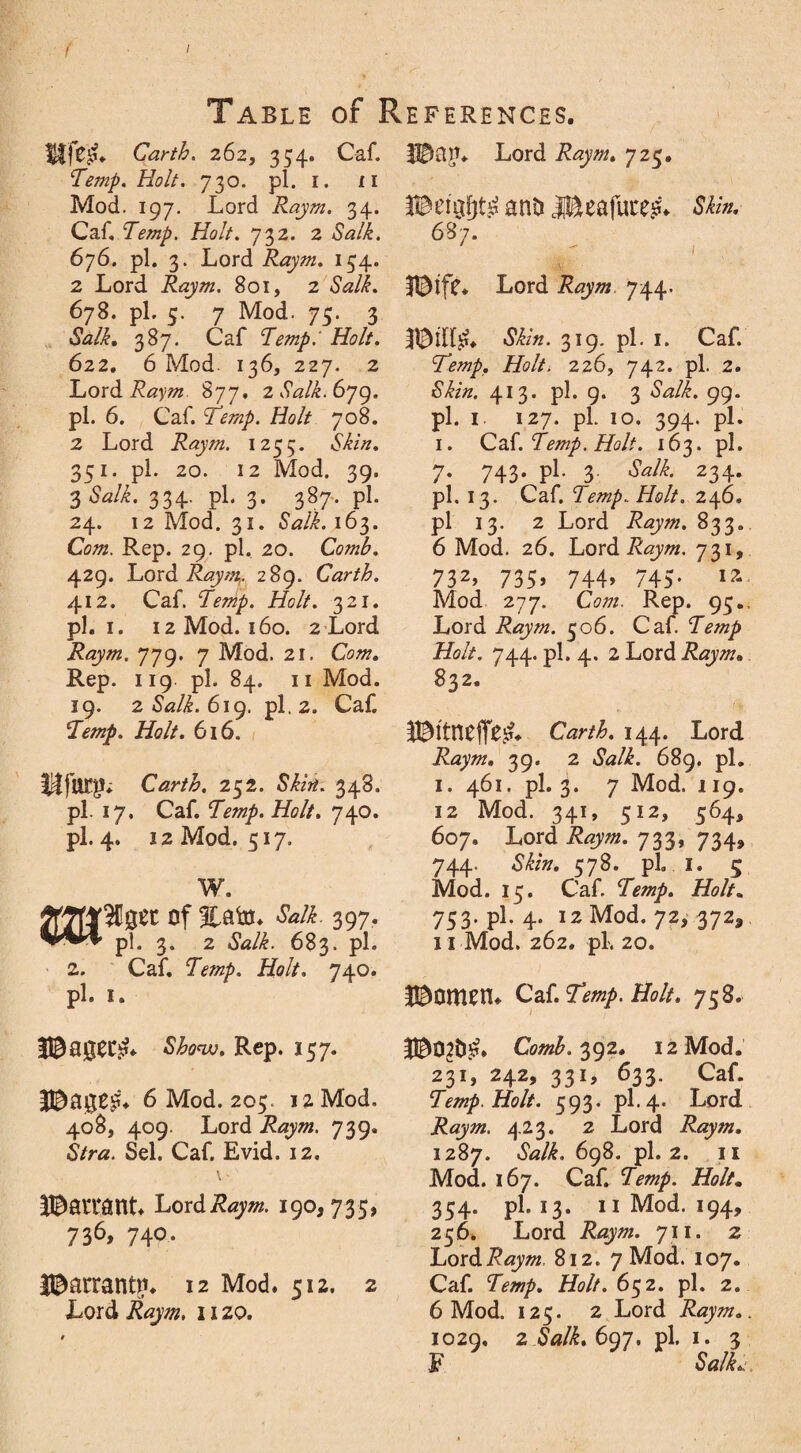 TABLE of REFERENCES.
Uſes. Carth. 262, 354. Caſ.
Temp. Holt. 730. pl. 1. 11
Mod. 197. Lord Raym. 34.
Caſ. Temp. Holt. 732. 2 Salk.
676. pl. 3. Lord Raym. 154.
2 Lord Raym. 801, 2 Salk.
678. pl. 5. 7 Mod. 75. 3
Salk. 387. Caſ Temp. Holt.
622. 6 Mod. 136, 227. 2
Lord Raym 877. 2 Salk. 679.
pl. 6. Caſ. Temp. Holt 708.
2 Lord Raym. 1255. Skin.
351. pl. 20. 12 Mod. 39.
3 Salk. 334. pl. 3. 387. pl.
24. 12 Mod. 31. Salk. 163.
Com. Rep. 29. pl. 20. Comb.
429. Lord Raym. 289. Carth.
412. Caſ. Temp. Holt. 321.
pl. 1. 12 Mod. 160. 2 Lord
Raym. 779. 7 Mod. 21. Com.
Rep. 119 pl. 84. 11 Mod.
19. 2 Salk. 619. pl. 2. Caſ.
Temp. Holt. 616.
Uſury. Carth. 252. Skin. 348.
pl. 17. Caſ. Temp. Holt. 740.
pl. 4. 12 Mod. 517.
W.
WAger of Law. Salk 397.
pl. 3. 2 Salk. 683. pl.
2. Caſ. Temp. Holt. 740.
pl. 1.
Wagers. Show. Rep. 157.
Wages. 6 Mod. 205. 12 Mod.
408, 409. Lord Raym. 739.
Stra. Sel. Caſ. Evid. 12.
Warrant. Lord Raym. 190, 735,
736, 740.
Warranty. 12 Mod. 512. 2
Lord Raym. 1120.
Way. Lord Raym. 725.
Weights and Meaſures. Skin.
687.
Wife. Lord Raym 744.
Wills. Skin. 319. pl. 1. Caſ.
Temp. Holt. 226, 742. pl. 2.
Skin. 413. pl. 9. 3 Salk. 99.
pl. 1 127. pl. 10. 394. pl.
1. Caſ. Temp. Holt. 163. pl.
7. 743. pl. 3 Salk. 234.
pl. 13. Caſ. Temp. Holt. 246.
pl 13. 2 Lord Raym. 833.
6 Mod. 26. Lord Raym. 731,
732, 735, 744, 745. 12
Mod 277. Com. Rep. 95.
Lord Raym. 506. Caſ. Temp
Holt. 744. pl. 4. 2 Lord Raym.
832.
Witneſſes. Carth. 144. Lord
Raym. 39. 2 Salk. 689. pl.
1. 461. pl. 3. 7 Mod. 119.
12 Mod. 341, 512, 564,
607. Lord Raym. 733, 734,
744. Skin. 578. pl. 1. 5
Mod. 15. Caſ. Temp. Holt.
753. pl. 4. 12 Mod. 72, 372,
11 Mod. 262. pl. 20.
Women. Caſ. Temp. Holt. 758.
Words. Comb. 392. 12 Mod.
231, 242, 331, 633. Caſ.
Temp. Holt. 593. pl. 4. Lord
Raym. 423. 2 Lord Raym.
1287. Salk. 698. pl. 2. 11
Mod. 167. Caſ. Temp. Holt.
354. pl. 13. 11 Mod. 194,
256. Lord Raym. 711. 2
Lord Raym. 812. 7 Mod. 107.
Caſ. Temp. Holt. 652. pl. 2.
6 Mod. 125. 2 Lord Raym.
1029. 2 Salk. 697. pl. 1. 3
F Salk.